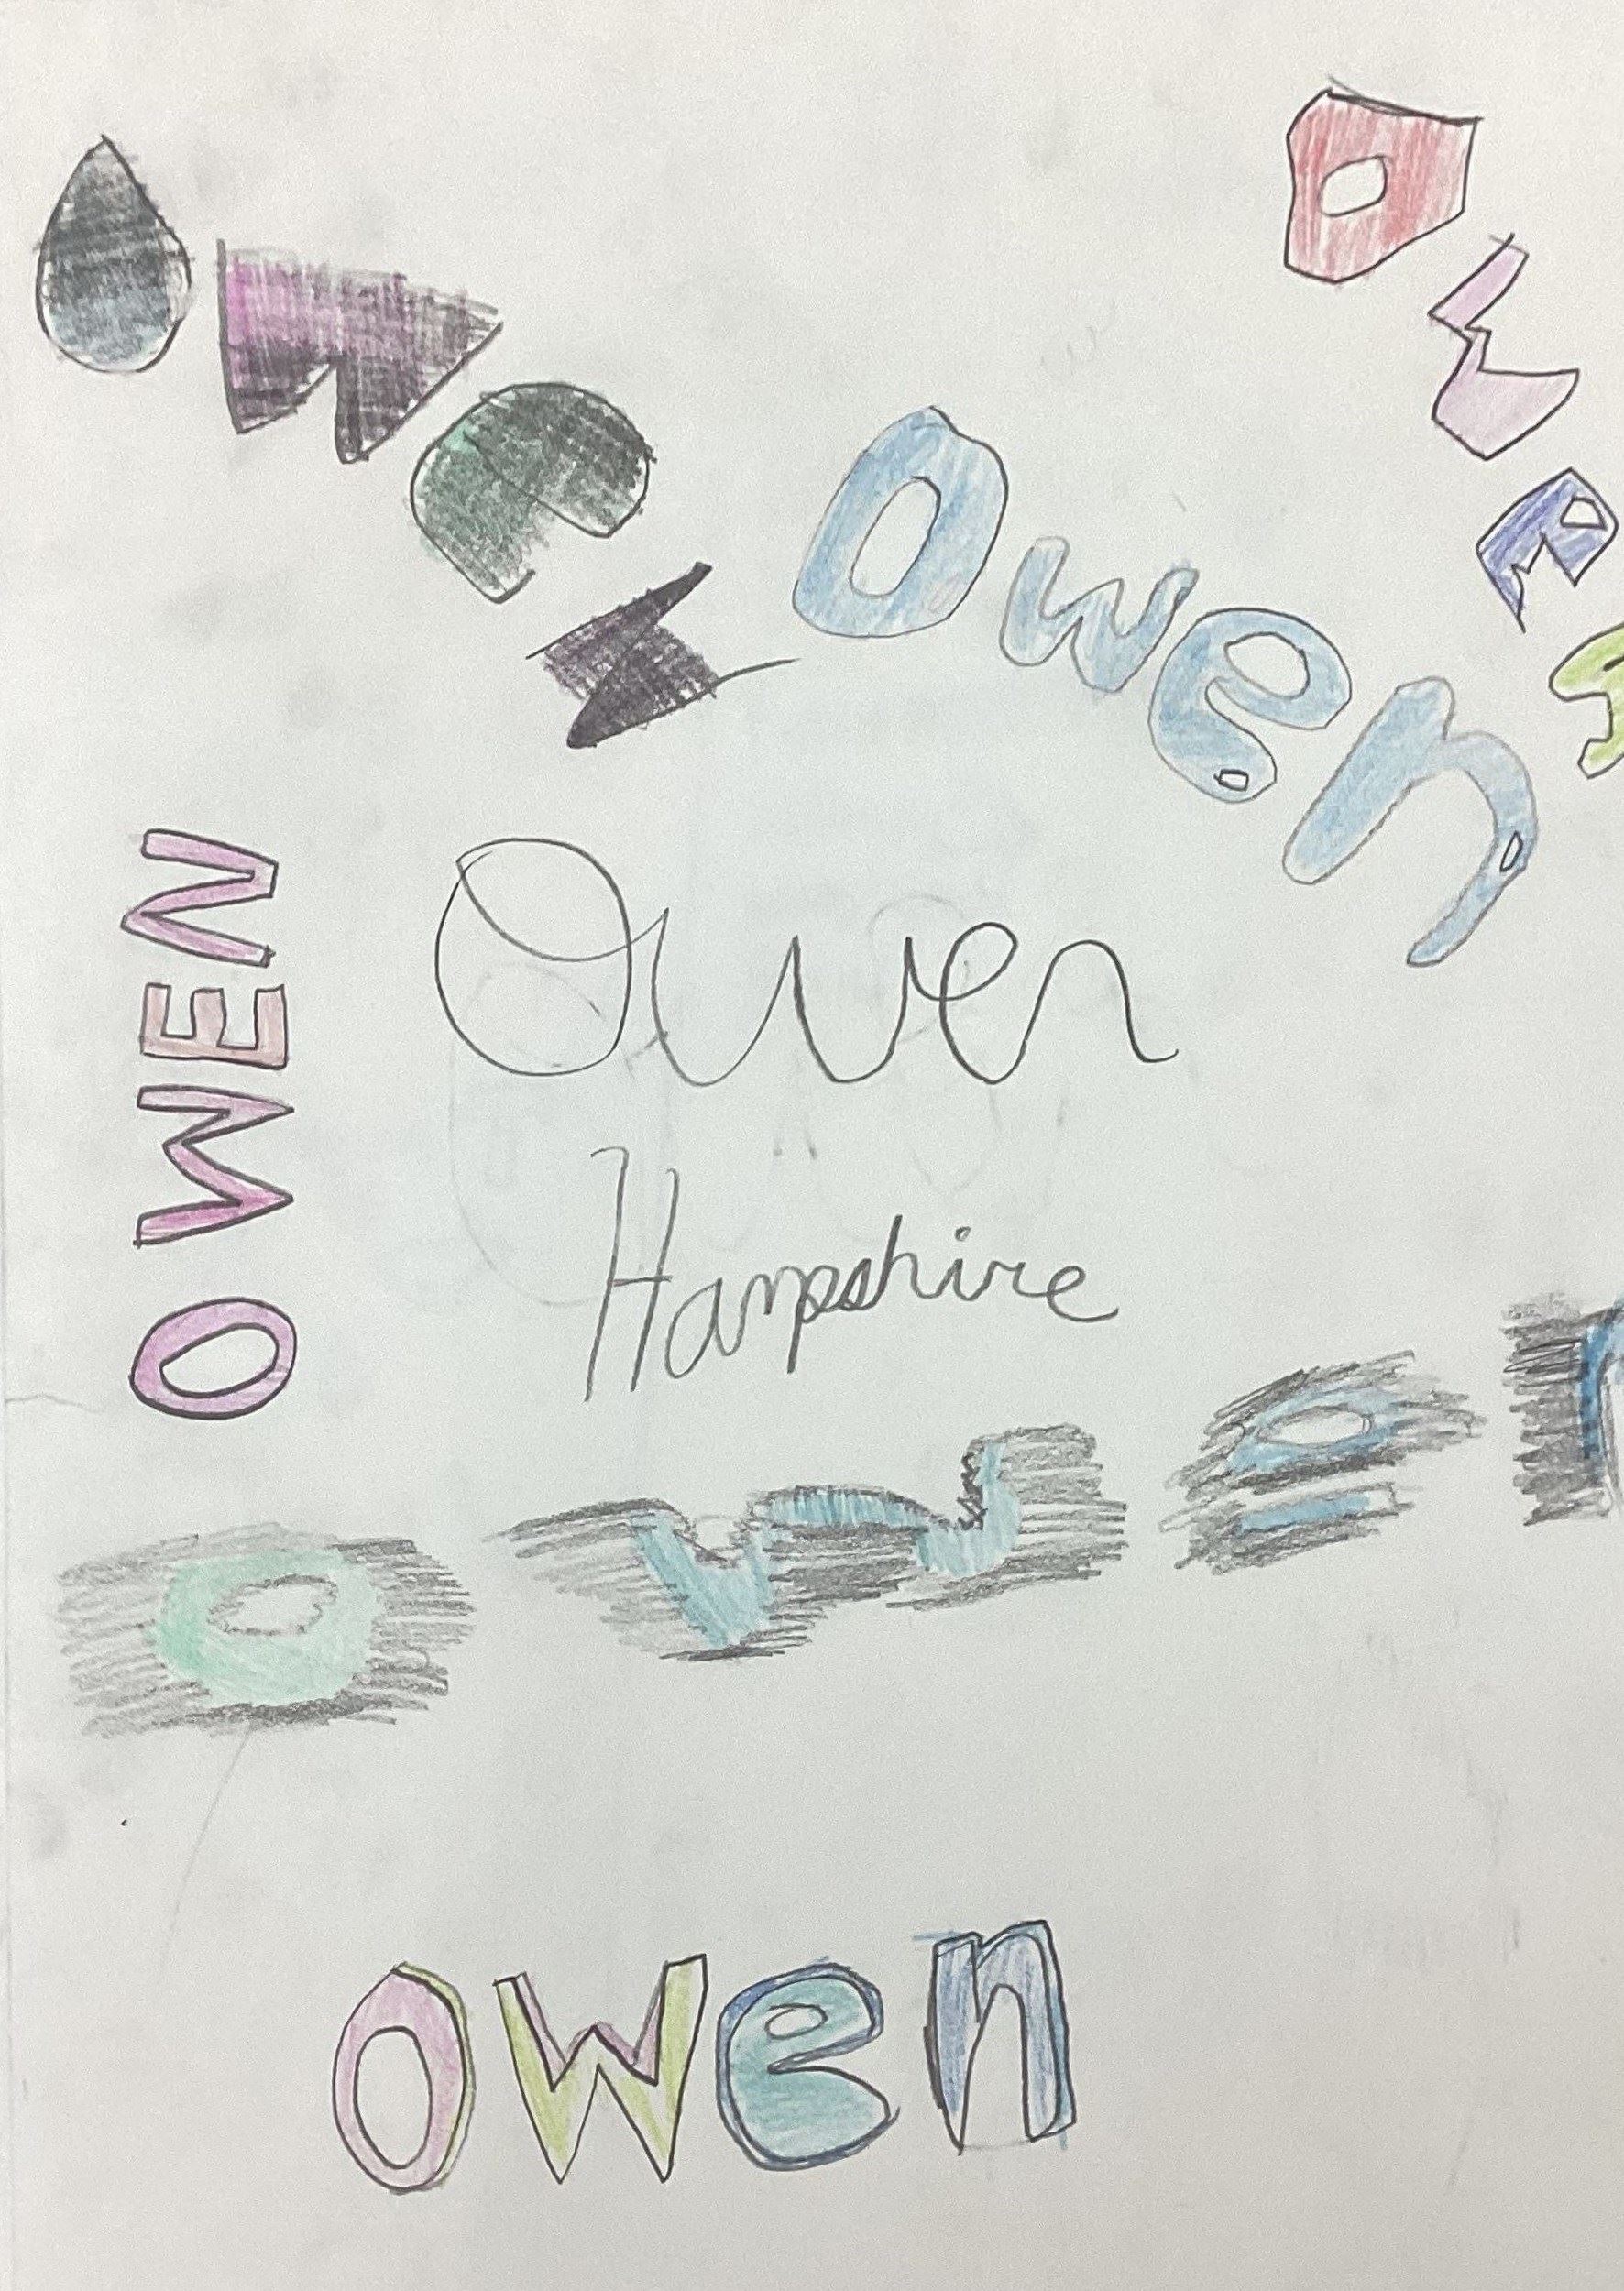 owen
owen
Owen
OWEN
Owen
Hampshire
owen
owen